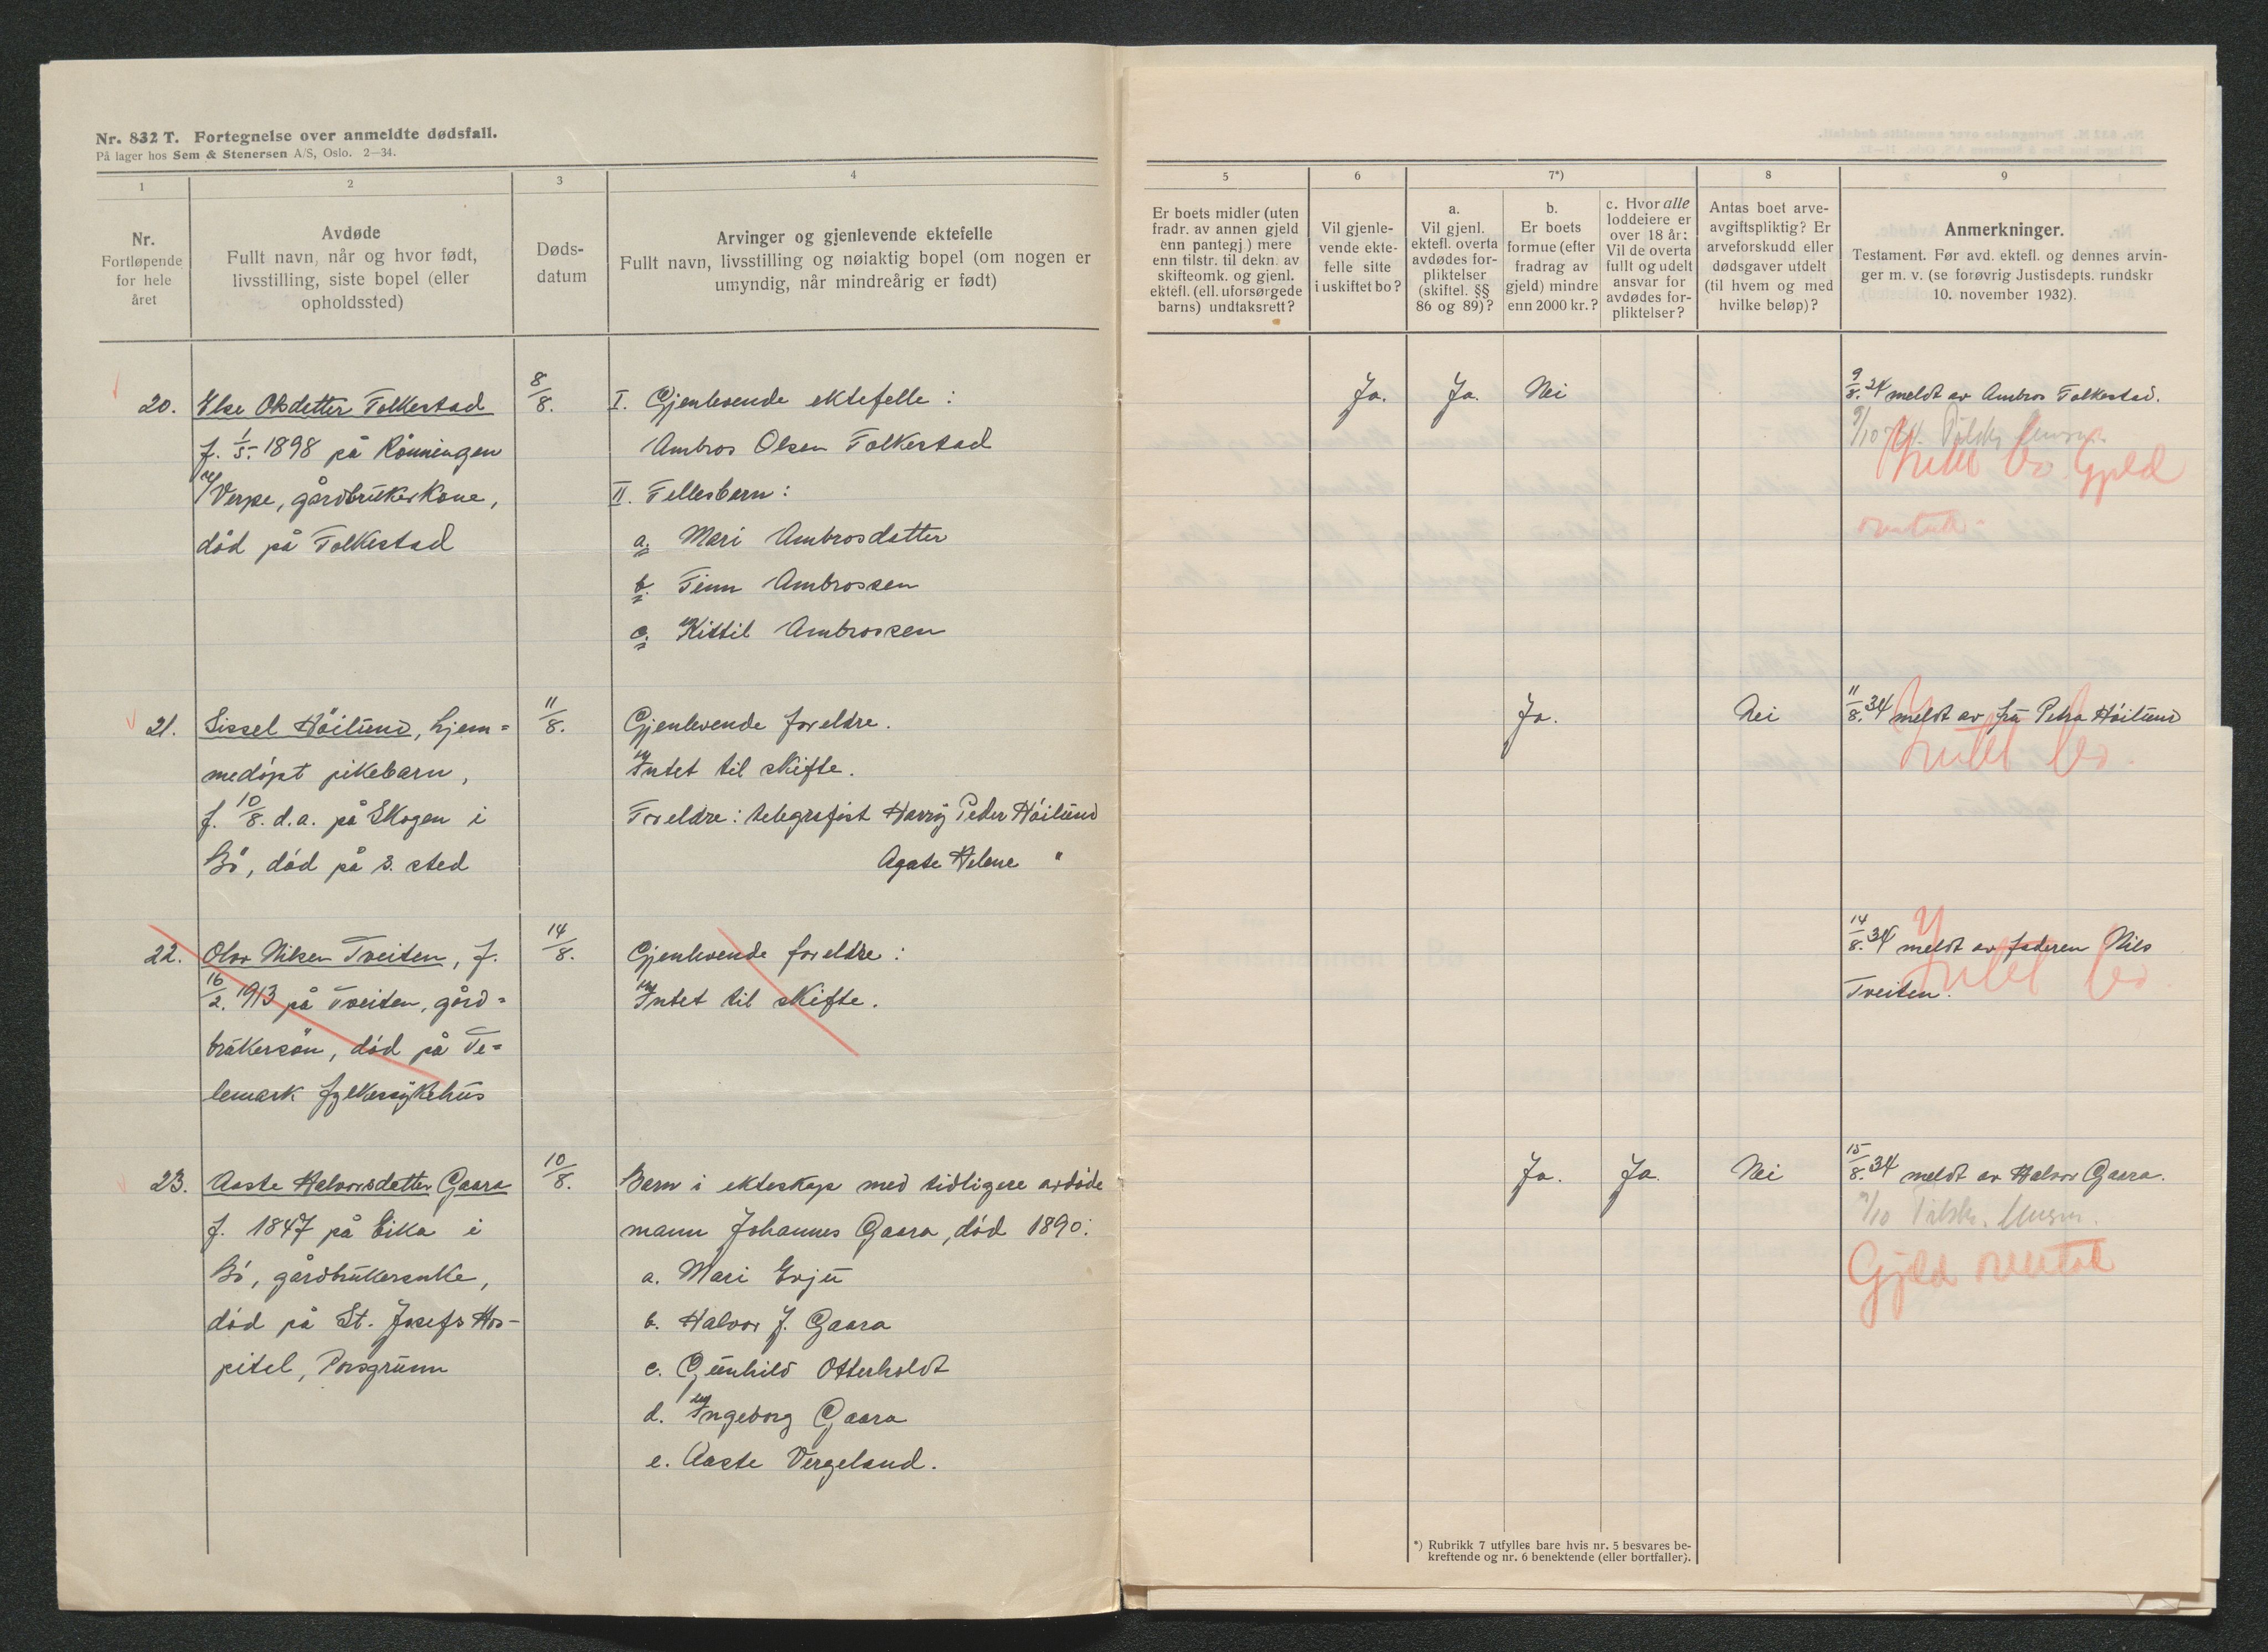 Nr. 832 T. Fortegnelse over anmeldte dødsfall.
På lager hos Sem & Stenersen A/S, Oslo. 2—34.
1
2
3
4
Nr.
Fortløpende
for hele
året
Avdøde
Fullt navn, når og hvor født,
livsstilling, siste bopel (eller
opholdssted)
Døds-
datum
Arvinger og gjenlevende ektefelle
Fullt navn, livsstilling og nøiaktig bopel (om nogen er
umyndig, når mindreårig er født)
5
6
7*)
8
9
Er boets midler (uten
fradr. av annen gjeld
enn pantegj.) mere
enn tilstr. til dekn. av
skifteomk. og gjenl.
ektefl. (ell. uforsørgede
barns) undtaksrett?
Vil gjenle-
vende ekte-
felle sitte
i uskiftet bo?
a.
Vil gjenl.
ektefl. overta
avdødes for-
pliktelser
(skiftel. §§
86 og 89)?
b.
Er boets
formue (efter
fradrag av
gjeld) mindre
enn 2000 kr.?
c. Hvor alle
loddeiere er
over 18 år:
Vil de overta
fullt og udelt
ansvar for
avdødes for-
pliktelser?
Antas boet arve-
avgiftspliktig? Er
arveforskudd eller
dødsgaver utdelt
(til hvem og med
hvilke beløp)?
Anmerkninger.
Testament. Før avd. ektefl. og dennes arvin-
ger m. v. (se forøvrig Justisdepts. rundskr
10. november 1932).
20.
Else Olsdetter Folkestad
f. 1/5.- 1898 på Rönningen
Verpe, gårdbrukerkone,
död på Folkestad
8/8.
I. Gjenlevende ektefelle :
Ambros Olsen Folkestad
II. Fellesbarn :
a. Mari Ambrosdatter
b. Finn Ambrossen
c. Kittil Ambrossen
Ja.
Ja.
Nei
9/8. 34 meldt av Ambros Folkestad.
9/10
Intet bo. Gjeld
overtatt
21.
Sissel Höilund, hjem=
medöpt pikebarn,
f. 10/8. d.a. på Skogen i
Bö, död på s. sted
11/8.
Gjenlevende foreldre.
Intet til skifte.
Foreldre : telegrafist Harry Peder Höilund
Agate Helene "
Ja.
Nei
11/8. 34 meldt av fru Petra Höilund
Intet bo.
22.
Olav Nilsen Tveiten, f.
16/2. 1913 på Tveiten, gård=
brukersön, död på Te=
lemark fylkessykehus
14/8.
Gjenlevende foreldre :
Intet til skifte.
14/8. 34 meldt av faderen Nils
Tveiten.
Intet bo
23.
Aaste Halvorsdetter Gaara
f. 1847 på Eika i
Bö, gårdbrukerenke,
död på St. Josefs Hos-
pitel, Porsgrunn
10/8.
Barn i ekteskap med tidligere avdöde
mann Johannes Gaara, död 1890:
a. Mari Evju
b. Halvor J. Gaara
c. Gunhild Otterholdt
d. Ingeborg Gaara
e. Aaste Vergeland.
Ja.
Ja.
Nei
15/8. 34 meldt av Halvor Gaara.
9/10
Gjeld overtatt
*) Rubrikk 7 utfylles bare hvis nr. 5 besvares be-
kreftende og nr. 6 benektende (eller bortfaller).